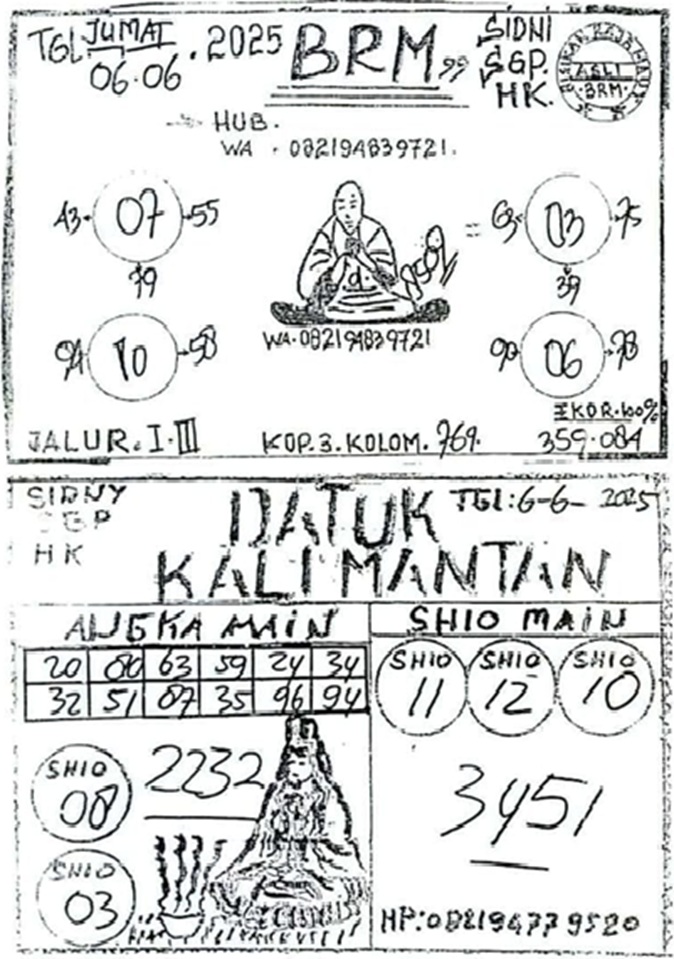 TGL JUMAT 06.06 . 2025
BRM 99
SIDNI
SGP.
HK.
ASLI
BRM
HUB.
WA . 082194839721.
43 07 55
79
63 03 75
39
ASLI
WA. 082194839721
94 10 58
90 06 78
EKOR. 100%
JALUR. I. III
KOP. 3. KOLOM. 769.
359.084
SIDNY
SGP
HK
DATUK
KALIMANTAN
TGL: 6-6- 2025
ANGKA MAIN
20 80 63 59 24 34
32 51 87 35 96 94
SHIO MAIN
SHIO 11
SHIO 12
SHIO 10
SHIO 08
2232
SHIO 03
3451
HP: 082194779520